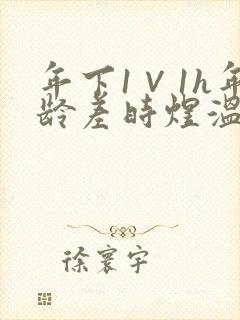 年下1V1h年
龄差时煜温
徐寰宇